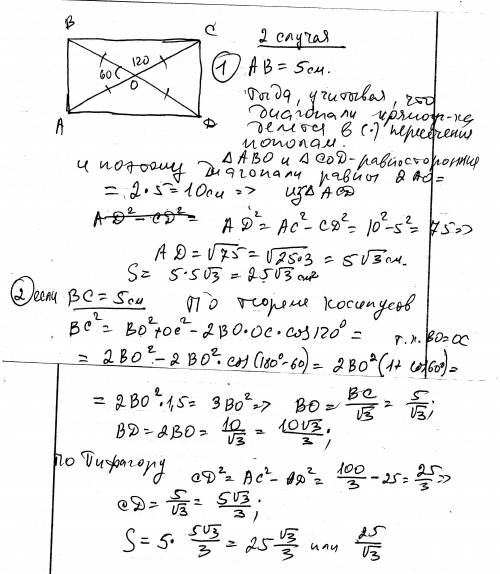 B C
120
60
O
A D
2 случая
① AB = 5 см.
Тогда, учитывая, что
диагонали прямоуг-ка
делятся в (·) пересечения
пополам.
△ABO и △COD - равносторонние
и поэтому диагонали равны 2AO =
= 2·5 = 10 см => из △ACD
AD² - CD² = AD² = AC² - CD² = 10² - 5² = 75 =>
AD = √75 = √25·3 = 5√3 см.
S = 5·5√3 = 25√3 см²
② если BC = 5 см По теореме косинусов
BC² = BO² + OC² - 2BO·OC·cos120° = т.к. BO = OC
= 2BO² - 2BO²·cos(180°-60) = 2BO²(1+cos60°) =
= 2BO²·1,5 = 3BO² => BO = BC/√3 = 5/√3;
BD = 2BO = 10/√3 = 10√3/3;
по Пифагору CD² = AC² - AD² = 100/3 - 25 = 25/3 =>
CD = 5/√3 = 5√3/3;
S = 5· 5√3/3 = 25 √3/3 или 25/√3